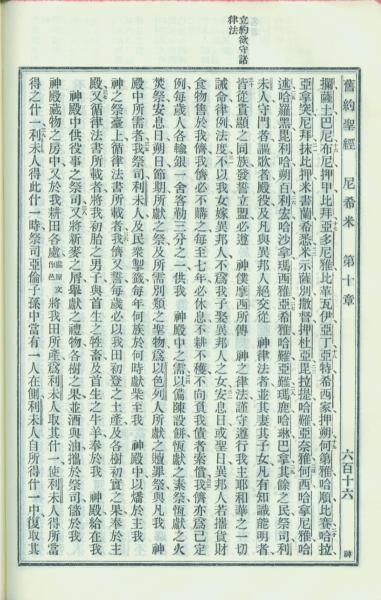 立約欲守諸
律法
舊約聖經 尼希米 第十章 六百十六
擱薩土巴尼布尼押甲比拜亞多尼雅比革瓦伊亞丁亞特希西家押朔何第雅哈順比賽哈拉
亞拿突尼拜抹比押米書蘭希悉米示薩別撒督押杜亞毘拉提哈難亞奈雅何西哈拿尼雅哈
述哈羅黑毘利哈朔百利宏哈沙拿瑪西雅亞希雅哈難亞難瑪鹿哈琳巴拿其餘之民祭司利
未人守門者謳歌者殿役及凡與異邦人絕交從 神律法者並其妻其子女凡有知識能明者
皆從貴顯之同族發誓立盟必遵 神僕摩西所傳 神之律法謹守遵行我主耶和華之一切
誡命律例法度不以我女嫁異邦人不爲我子娶異邦人之女安息日或聖日異邦人若攜貨財
食物售於我儕我儕必不購之每至七年必休息不耕不穫不向負我債者索償我儕亦爲己定
例每歲人各輸銀一舍客勒三分之一供我 神殿中之需以備陳設餅恆獻之素祭恆獻之火
焚祭安息日朔日節期所獻之祭及所需別類之聖物爲以色列人所獻之贖罪祭與凡我 神
殿中所需者我祭司利未人及民衆掣籤每年何族於何時獻柴至我 神殿中以燔於主我
神之祭臺上循律法書所載者我儕又誓每歲必以我田初登之土產及各樹初實之果奉於主
殿又循律法書所載者將我初胎之男子與首生之牲畜及首生之牛羊奉於我 神殿給在我
神殿中供役事之祭司又將新麥之屑舉獻之禮物各樹之果並酒與油攜於祭司儲於我
神殿藏物之房中又於我耕田各處 將我田所產爲利未人取其什一使利未人得所當
得之什一利未人得此什一時祭司亞倫子孫中當有一人在側利未人自所得什一中復取其